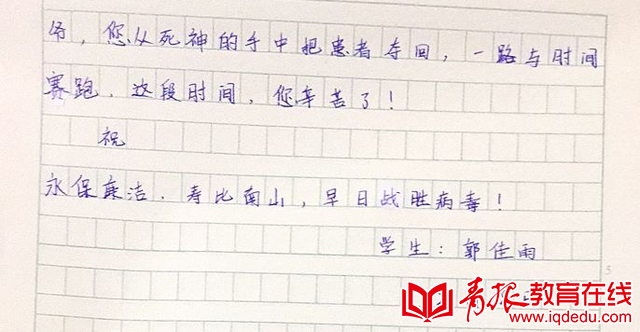 务，您从死神的手中把患者夺回，一路与时间
赛跑，这段时间，您辛苦了！
祝
永保廉洁，寿比南山，早日战胜病毒！
学生：郭佳雨
5
青报教育在线
www.iqdedu.com